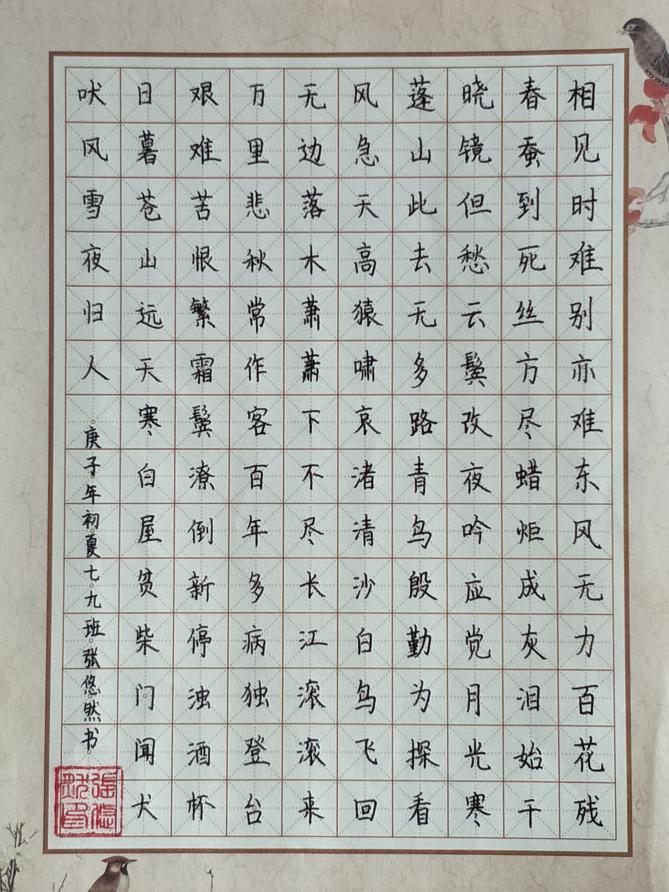 相见时难别亦难东风无力百花残
春蚕到死丝方尽蜡炬成灰泪始干
晓镜但愁云鬓改夜吟应觉月光寒
蓬山此去无多路青鸟殷勤为探看
风急天高猿啸哀渚清沙白鸟飞回
无边落木萧萧下不尽长江滚滚来
万里悲秋常作客百年多病独登台
艰难苦恨繁霜鬓潦倒新停浊酒杯
日暮苍山远天寒白屋贫柴门闻犬
吠风雪夜归人
庚子年初夏七。九班张悠然书